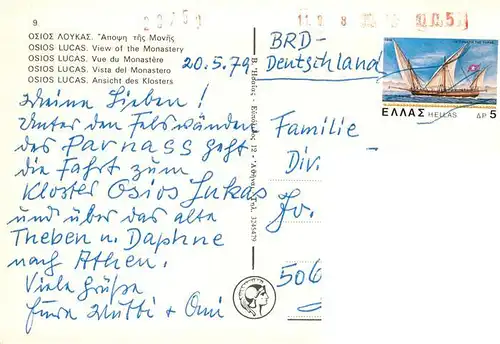 9.
ΟΣΙΟΣ ΛΟΥΚΑΣ. Ἄποψη τῆς Μονῆς
OSIOS LUCAS. View of the Monastery
OSIOS LUCAS. Vue du Monastère
OSIOS LUCAS. Vista del Monastero
OSIOS LUCAS. Ansicht des Klosters
20.5.79
Meine Lieben!
Unter den Felswänden
des Parnass geht
die Fahrt zum
Kloster Osios Lukas
und über das alte
Theben u. Daphne
nach Athen.
Viele Grüße
Eure Mutti + Omi
12
Τηλ. 3245479
BRD-
Deutschland
Familie
Div.
Fo.
506
ΕΛΛΑΣ HELLAS ΔΡ 5